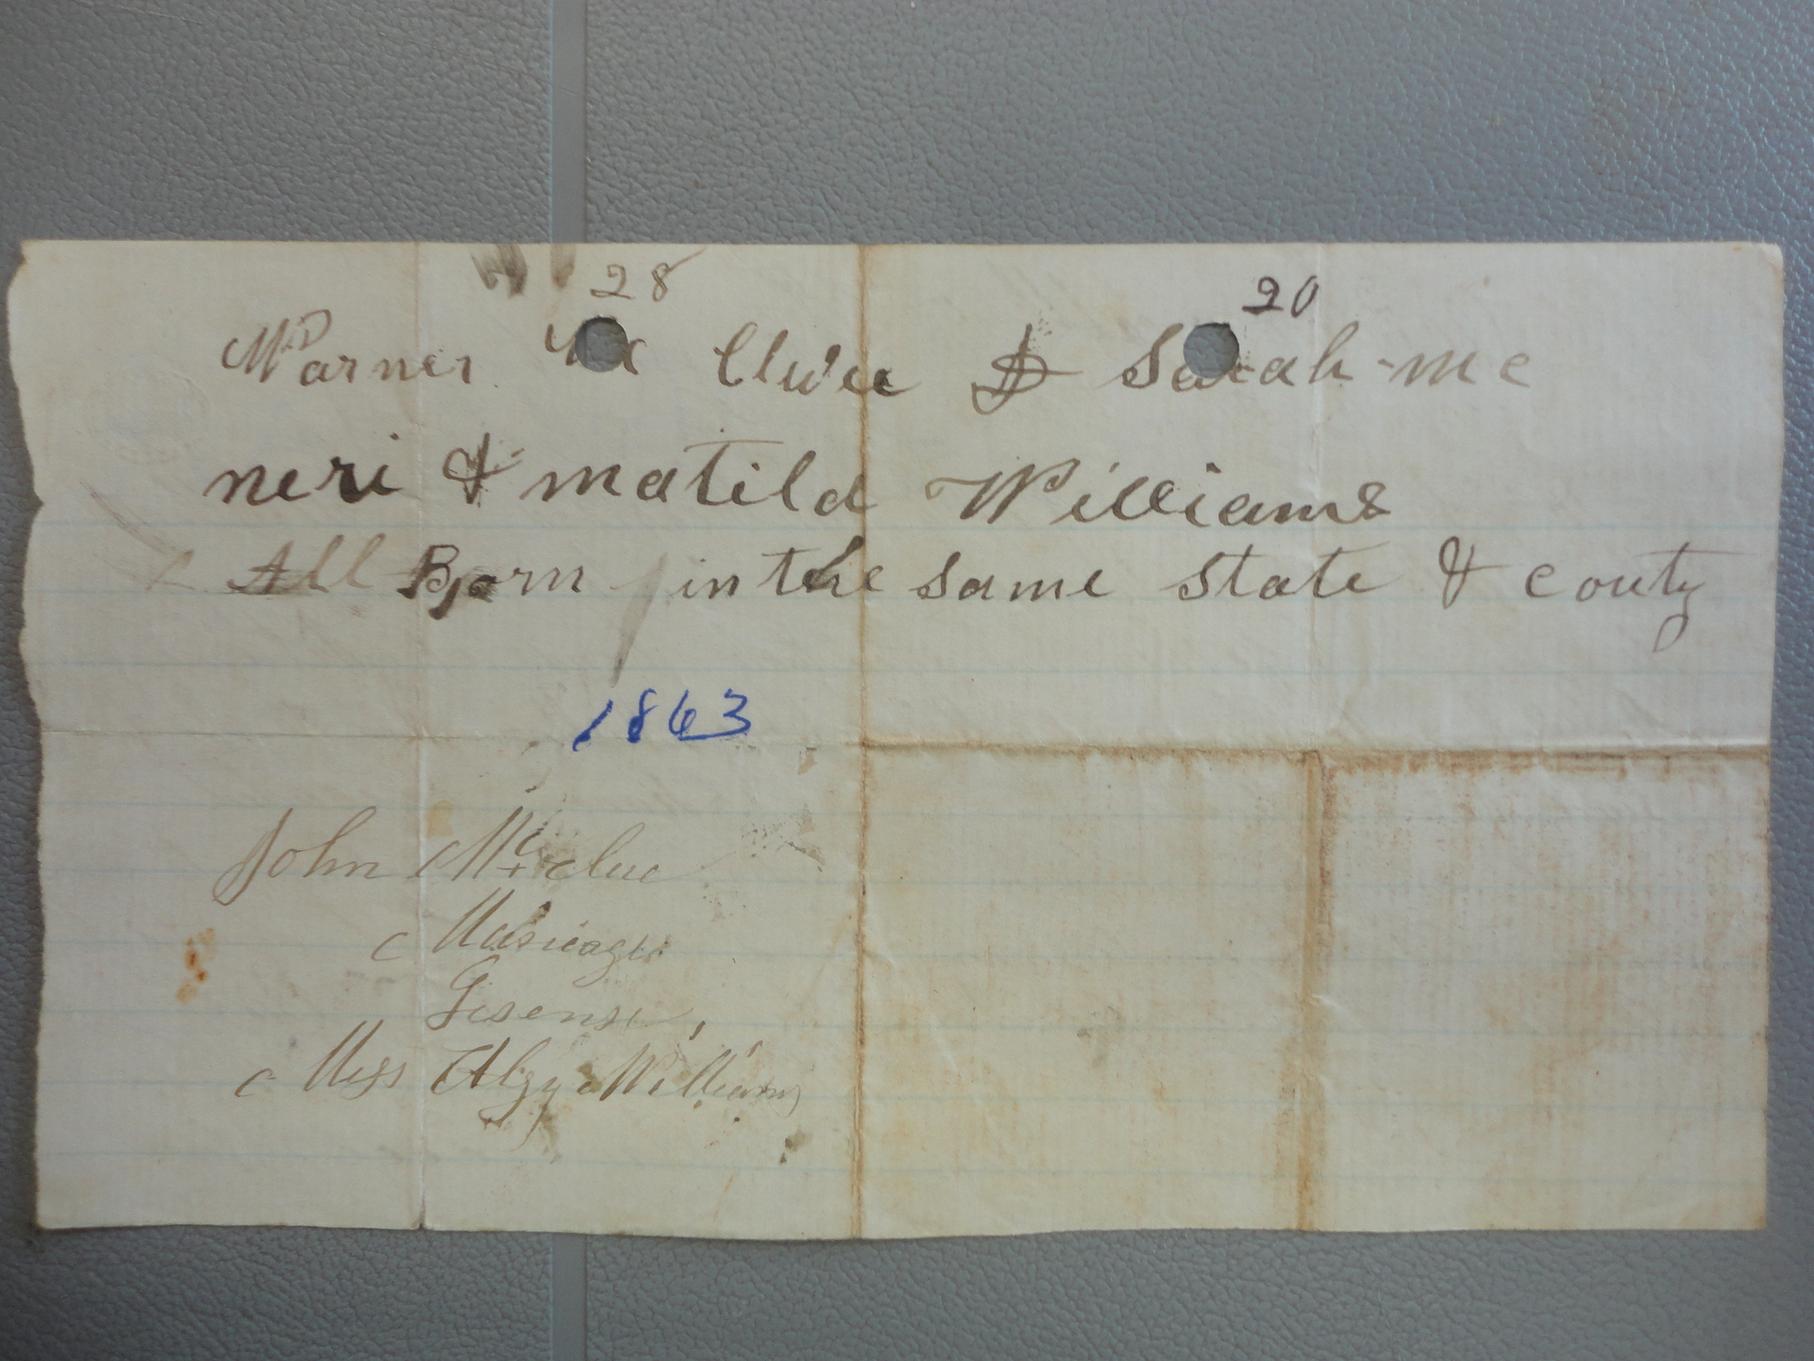 28 20
Warner Mc Clure & Sarah mc
neri & matild Williams
All Born in the same state & couty
1863
John Mcclue
Mariage
Lisense,
Miss Alzy Williams